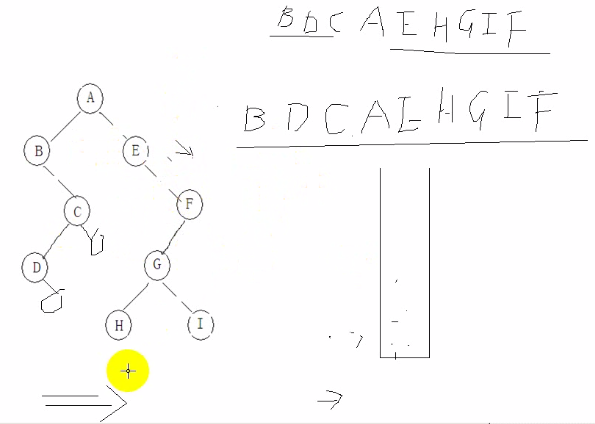 BDCAEHGIF
BDCAEHGIF
A
B E
C F
D G
H I